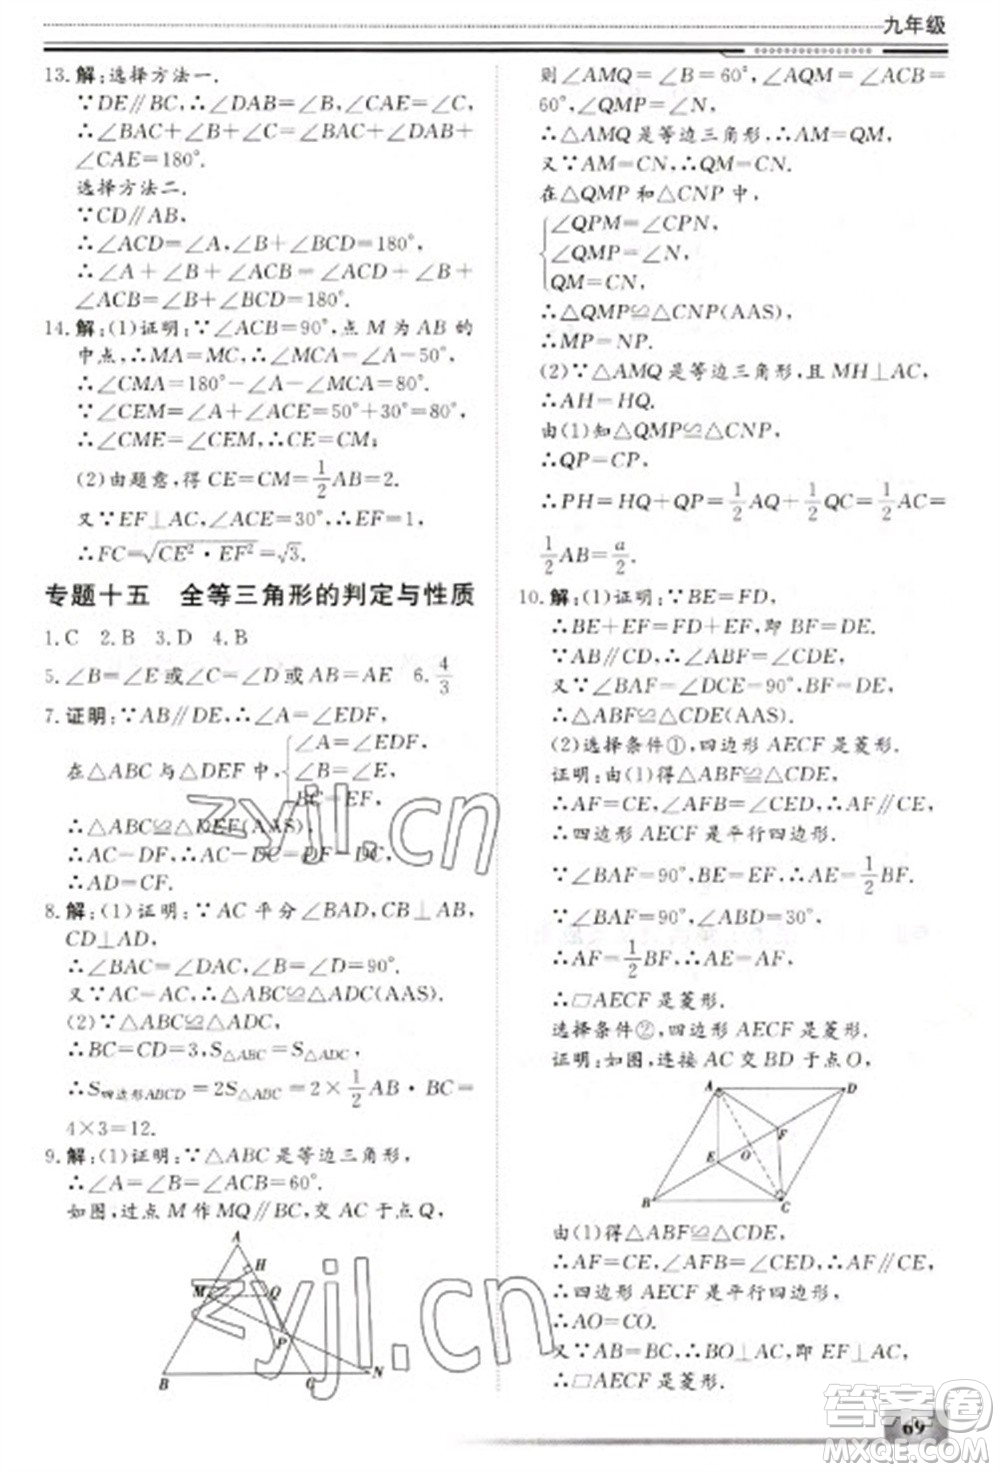 九年级
13.解:选择方法一.
∵DE∥BC,∴∠DAB=∠B,∠CAE=∠C,
∴∠BAC+∠B+∠C=∠BAC+∠DAB+
∠CAE=180°.
选择方法二.
∵CD∥AB,
∴∠ACD=∠A,∠B+∠BCD=180°,
∴∠A+∠B+∠ACB=∠ACD+∠B+
∠ACB=∠B+∠BCD=180°.
14.解:(1)证明:∵∠ACB=90°,点M为AB的
中点,∴MA=MC,∴∠MCA=∠A=50°,
∴∠CMA=180°-∠A-∠MCA=80°.
∵∠CEM=∠A+∠ACE=50°+30°=80°,
∴∠CME=∠CEM,∴CE=CM;
(2)由题意,得CE=CM=1/2AB=2.
又∵EF⊥AC,∠ACE=30°,∴EF=1,
∴FC=√(CE²·EF²)=√3.
专题十五 全等三角形的判定与性质
1.C 2.B 3.D 4.B
5.∠B=∠E或∠C=∠D或AB=AE 6.4/3
7.证明:∵AB∥DE,∴∠A=∠EDF,
在△ABC与△DEF中,{∠A=∠EDF,
∠B=∠E,
BC=EF,
∴△ABC≌△DEF(AAS).
∴AC=DF,∴AC-DC=DF-DC,
∴AD=CF.
8.解:(1)证明:∵AC平分∠BAD,CB⊥AB,
CD⊥AD,
∴∠BAC=∠DAC,∠B=∠D=90°.
又∵AC=AC,∴△ABC≌△ADC(AAS).
(2)∵△ABC≌△ADC,
∴BC=CD=3,S△ABC=S△ADC,
∴S四边形ABCD=2S△ABC=2×1/2AB·BC=
4×3=12.
9.解:(1)证明:∵△ABC是等边三角形,
∴∠A=∠B=∠ACB=60°.
如图,过点M作MQ∥BC,交AC于点Q,
A
H
M
Q
P
B
C
N
则∠AMQ=∠B=60°,∠AQM=∠ACB=
60°,∠QMP=∠N,
∴△AMQ是等边三角形,∴AM=QM,
又∵AM=CN,∴QM=CN,
在△QMP和△CNP中,
{∠QPM=∠CPN,
∠QMP=∠N,
QM=CN,
∴△QMP≌△CNP(AAS),
∴MP=NP.
(2)∵△AMQ是等边三角形,且MH⊥AC,
∴AH=HQ.
由(1)知△QMP≌△CNP,
∴QP=CP,
∴PH=HQ+QP=1/2AQ+1/2QC=1/2AC=
1/2AB=a/2.
10.解:(1)证明:∵BE=FD,
∴BE+EF=FD+EF,即BF=DE.
∵AB∥CD,∴∠ABF=∠CDE,
又∵∠BAF=∠DCE=90°,BF=DE,
∴△ABF≌△CDE(AAS).
(2)选择条件①,四边形AECF是菱形.
证明:由(1)得△ABF≌△CDE,
∴AF=CE,∠AFB=∠CED,∴AF∥CE,
∴四边形AECF是平行四边形.
∵∠BAF=90°,BE=EF,∴AE=1/2BF,
∵∠BAF=90°,∠ABD=30°,
∴AF=1/2BF,∴AE=AF,
∴▱AECF是菱形.
选择条件②,四边形AECF是菱形.
证明:如图,连接AC交BD于点O,
A
D
F
O
E
B
C
由(1)得△ABF≌△CDE,
∴AF=CE,∠AFB=∠CED,∴AF∥CE,
∴四边形AECF是平行四边形,
∴AO=CO.
又∵AB=BC,∴BO⊥AC,即EF⊥AC,
∴▱AECF是菱形.
zyjl.cn
zyjl.cn
69
答案圈
MXQE.COM